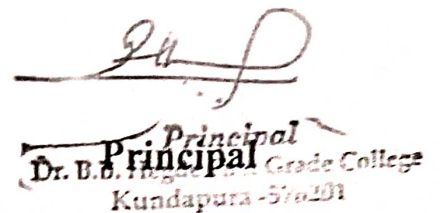 Principal
Principal
Dr. B.B. Hegde Grade College
Kundapura -576201